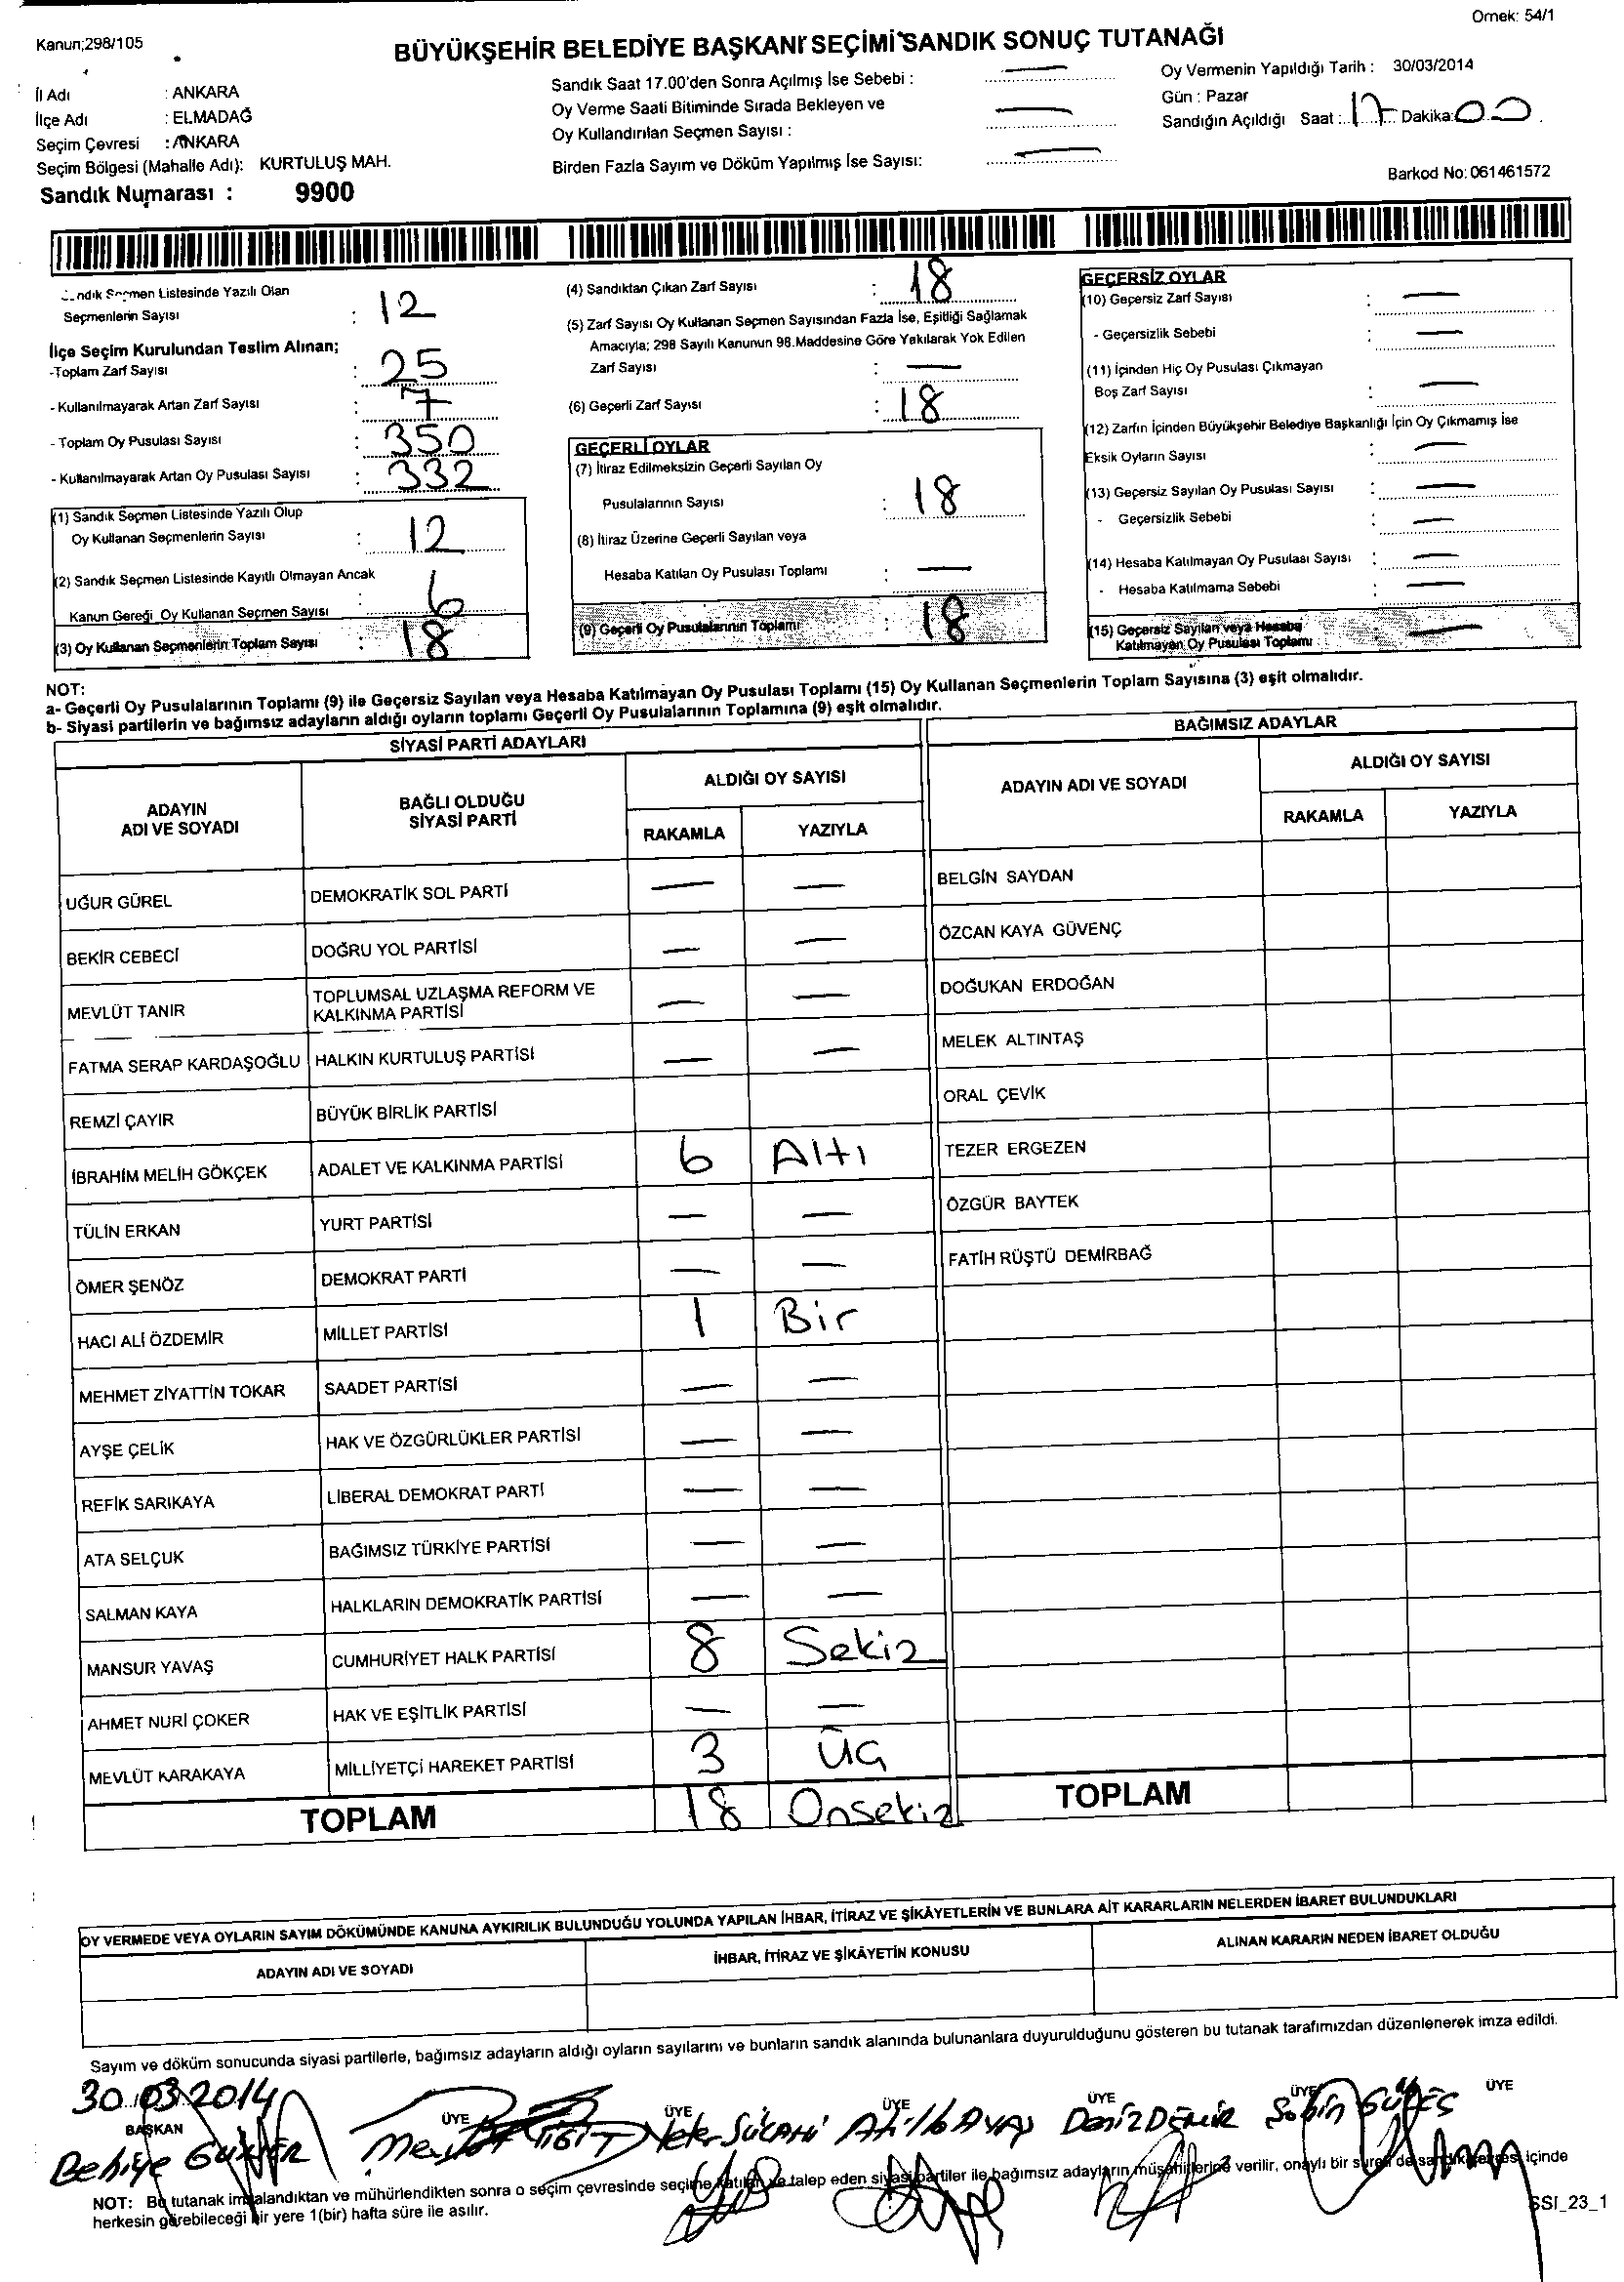 Örnek: 54/1
Kanun;298/105
BÜYÜKŞEHİR BELEDİYE BAŞKANI SEÇİMİ SANDIK SONUÇ TUTANAĞI
İl Adı : ANKARA
İlçe Adı : ELMADAĞ
Seçim Çevresi : ANKARA
Seçim Bölgesi (Mahalle Adı): KURTULUŞ MAH.
Sandık Numarası : 9900
Sandık Saat 17.00'den Sonra Açılmış İse Sebebi : —
Oy Verme Saati Bitiminde Sırada Bekleyen ve
Oy Kullandırılan Seçmen Sayısı : —
Birden Fazla Sayım ve Döküm Yapılmış İse Sayısı: —
Oy Vermenin Yapıldığı Tarih : 30/03/2014
Gün : Pazar
Sandığın Açıldığı Saat : 17 Dakika: 00
Barkod No: 061461572
Sandık Seçmen Listesinde Yazılı Olan
Seçmenlerin Sayısı : 12
İlçe Seçim Kurulundan Teslim Alınan;
-Toplam Zarf Sayısı : 25
- Kullanılmayarak Artan Zarf Sayısı : 7
- Toplam Oy Pusulası Sayısı : 350
- Kullanılmayarak Artan Oy Pusulası Sayısı : 332
(1) Sandık Seçmen Listesinde Yazılı Olup
Oy Kullanan Seçmenlerin Sayısı : 12
(2) Sandık Seçmen Listesinde Kayıtlı Olmayan Ancak
Kanun Gereği Oy Kullanan Seçmen Sayısı : 6
(3) Oy Kullanan Seçmenlerin Toplam Sayısı : 18
(4) Sandıktan Çıkan Zarf Sayısı : 18
(5) Zarf Sayısı Oy Kullanan Seçmen Sayısından Fazla İse, Eşitliği Sağlamak
Amacıyla; 298 Sayılı Kanunun 98.Maddesine Göre Yakılarak Yok Edilen
Zarf Sayısı : —
(6) Geçerli Zarf Sayısı : 18
GEÇERLİ OYLAR
(7) İtiraz Edilmeksizin Geçerli Sayılan Oy
Pusulalarının Sayısı : 18
(8) İtiraz Üzerine Geçerli Sayılan veya
Hesaba Katılan Oy Pusulası Toplamı : —
(9) Geçerli Oy Pusulalarının Toplamı : 18
GEÇERSİZ OYLAR
(10) Geçersiz Zarf Sayısı : —
- Geçersizlik Sebebi : —
(11) İçinden Hiç Oy Pusulası Çıkmayan
Boş Zarf Sayısı : —
(12) Zarfın İçinden Büyükşehir Belediye Başkanlığı İçin Oy Çıkmamış İse
Eksik Oyların Sayısı : —
(13) Geçersiz Sayılan Oy Pusulası Sayısı : —
- Geçersizlik Sebebi : —
(14) Hesaba Katılmayan Oy Pusulası Sayısı : —
- Hesaba Katılmama Sebebi : —
(15) Geçersiz Sayılan veya Hesaba
Katılmayan Oy Pusulası Toplamı : —
NOT:
a- Geçerli Oy Pusulalarının Toplamı (9) ile Geçersiz Sayılan veya Hesaba Katılmayan Oy Pusulası Toplamı (15) Oy Kullanan Seçmenlerin Toplam Sayısına (3) eşit olmalıdır.
b- Siyasi partilerin ve bağımsız adayların aldığı oyların toplamı Geçerli Oy Pusulalarının Toplamına (9) eşit olmalıdır.
SİYASİ PARTİ ADAYLARI
ADAYIN ADI VE SOYADI
BAĞLI OLDUĞU SİYASİ PARTİ
ALDIĞI OY SAYISI
RAKAMLA YAZIYLA
UĞUR GÜREL DEMOKRATİK SOL PARTİ — —
BEKİR CEBECİ DOĞRU YOL PARTİSİ — —
MEVLÜT TANIR TOPLUMSAL UZLAŞMA REFORM VE KALKINMA PARTİSİ — —
FATMA SERAP KARDAŞOĞLU HALKIN KURTULUŞ PARTİSİ — —
REMZİ ÇAYIR BÜYÜK BİRLİK PARTİSİ
İBRAHİM MELİH GÖKÇEK ADALET VE KALKINMA PARTİSİ 6 Altı
TÜLİN ERKAN YURT PARTİSİ — —
ÖMER ŞENÖZ DEMOKRAT PARTİ — —
HACI ALİ ÖZDEMİR MİLLET PARTİSİ 1 Bir
MEHMET ZİYATTİN TOKAR SAADET PARTİSİ — —
AYŞE ÇELİK HAK VE ÖZGÜRLÜKLER PARTİSİ — —
REFİK SARIKAYA LİBERAL DEMOKRAT PARTİ — —
ATA SELÇUK BAĞIMSIZ TÜRKİYE PARTİSİ — —
SALMAN KAYA HALKLARIN DEMOKRATİK PARTİSİ — —
MANSUR YAVAŞ CUMHURİYET HALK PARTİSİ 8 Sekiz
AHMET NURİ ÇOKER HAK VE EŞİTLİK PARTİSİ — —
MEVLÜT KARAKAYA MİLLİYETÇİ HAREKET PARTİSİ 3 Üç
TOPLAM 18 Onsekiz
BAĞIMSIZ ADAYLAR
ADAYIN ADI VE SOYADI
ALDIĞI OY SAYISI
RAKAMLA YAZIYLA
BELGİN SAYDAN
ÖZCAN KAYA GÜVENÇ
DOĞUKAN ERDOĞAN
MELEK ALTINTAŞ
ORAL ÇEVİK
TEZER ERGEZEN
ÖZGÜR BAYTEK
FATİH RÜŞTÜ DEMİRBAĞ
TOPLAM
OY VERMEDE VEYA OYLARIN SAYIM DÖKÜMÜNDE KANUNA AYKIRILIK BULUNDUĞU YOLUNDA YAPILAN İHBAR, İTİRAZ VE ŞİKÂYETLERİN VE BUNLARA AİT KARARLARIN NELERDEN İBARET BULUNDUKLARI
ADAYIN ADI VE SOYADI
İHBAR, İTİRAZ VE ŞİKÂYETİN KONUSU
ALINAN KARARIN NEDEN İBARET OLDUĞU
Sayım ve döküm sonucunda siyasi partilerle, bağımsız adayların aldığı oyların sayılarını ve bunların sandık alanında bulunanlara duyurulduğunu gösteren bu tutanak tarafımızdan düzenlenerek imza edildi.
30.03.2014
BAŞKAN ÜYE ÜYE ÜYE ÜYE ÜYE ÜYE
Behiye Deniz DEMİR
NOT: Bu tutanak imzalandıktan ve mühürlendikten sonra o seçim çevresinde seçime katılan ve talep eden siyasi partiler ile bağımsız adayların müşahitlerine verilir, onaylı bir sureti de sandık çevresi içinde
herkesin görebileceği bir yere 1(bir) hafta süre ile asılır.
SSI_23_1